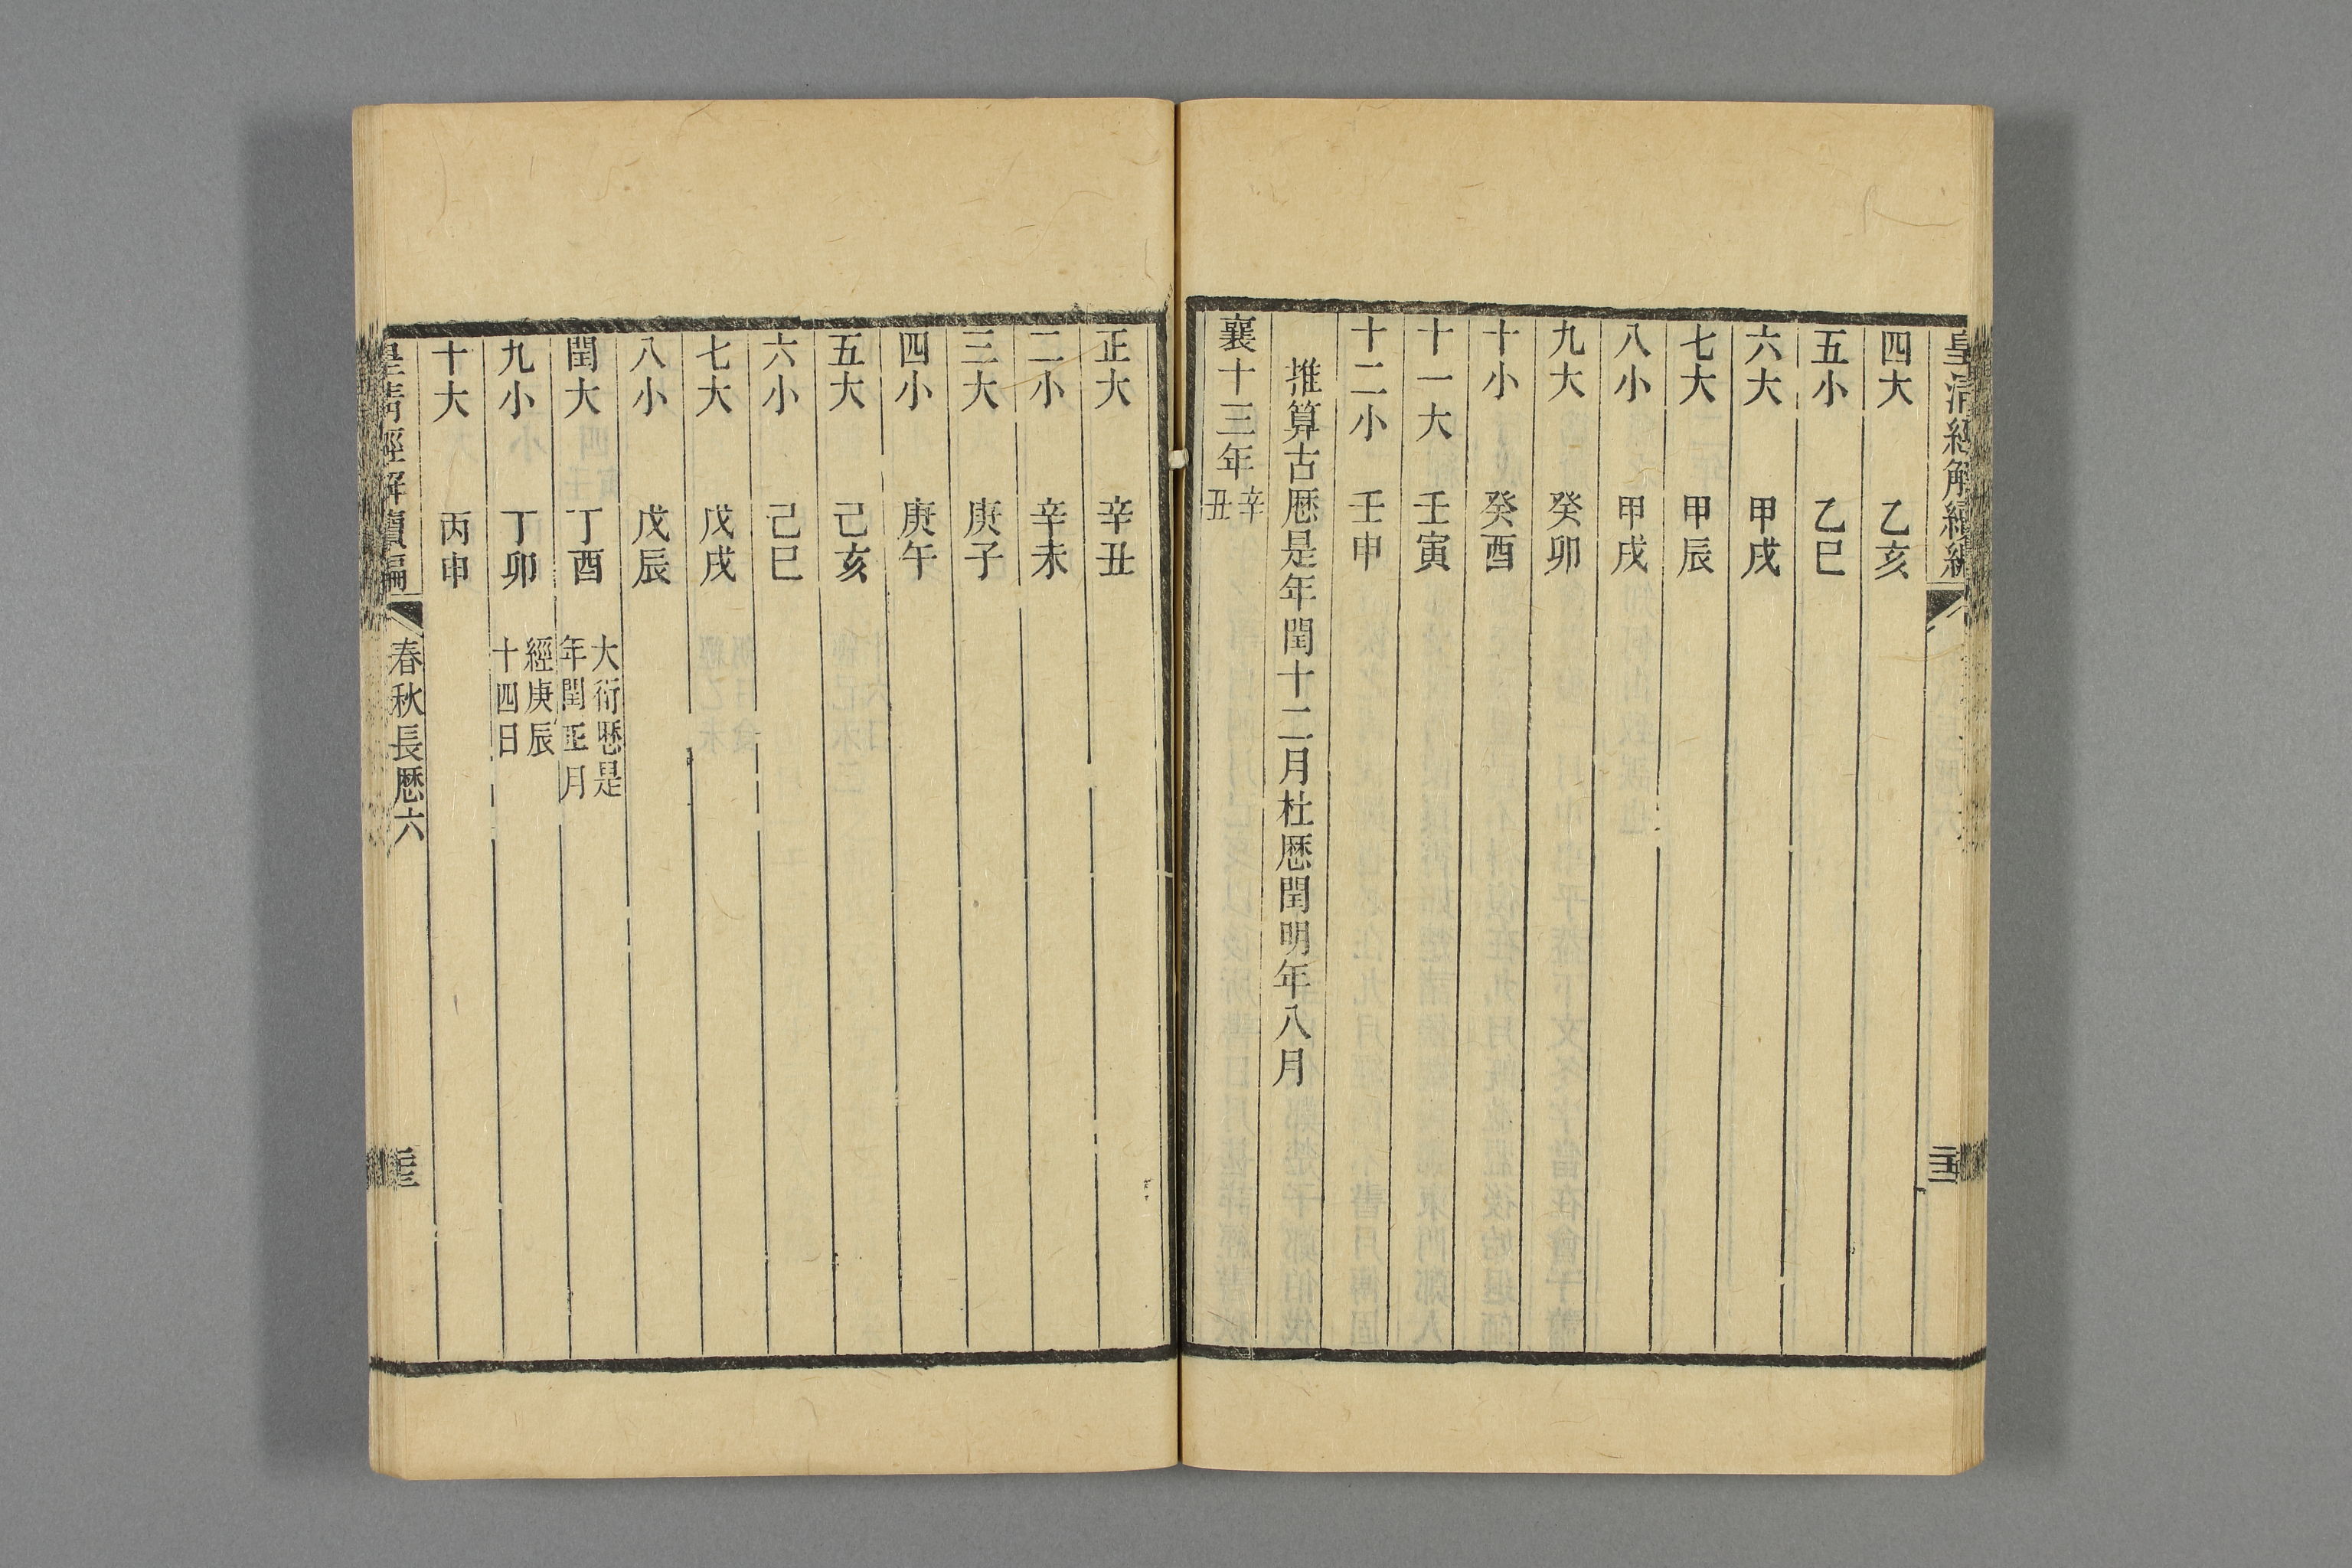 皇清經解續編
四大 乙亥
五小 乙巳
六大 甲戌
七大 甲辰
八小 甲戌
九大 癸卯
十小 癸酉
十一大 壬寅
十二小 壬申
推算古厯是年閏十二月杜厯閏明年八月
襄十三年辛
丑
正大 辛丑
二小 辛未
三大 庚子
四小 庚午
五大 己亥
六小 己巳
七大 戊戌
八小 戊辰
閏大 丁酉 大衍厯是
年閏正月
九小 丁卯 經庚辰
十四日
十大 丙申
皇清經解續編 春秋長厯六